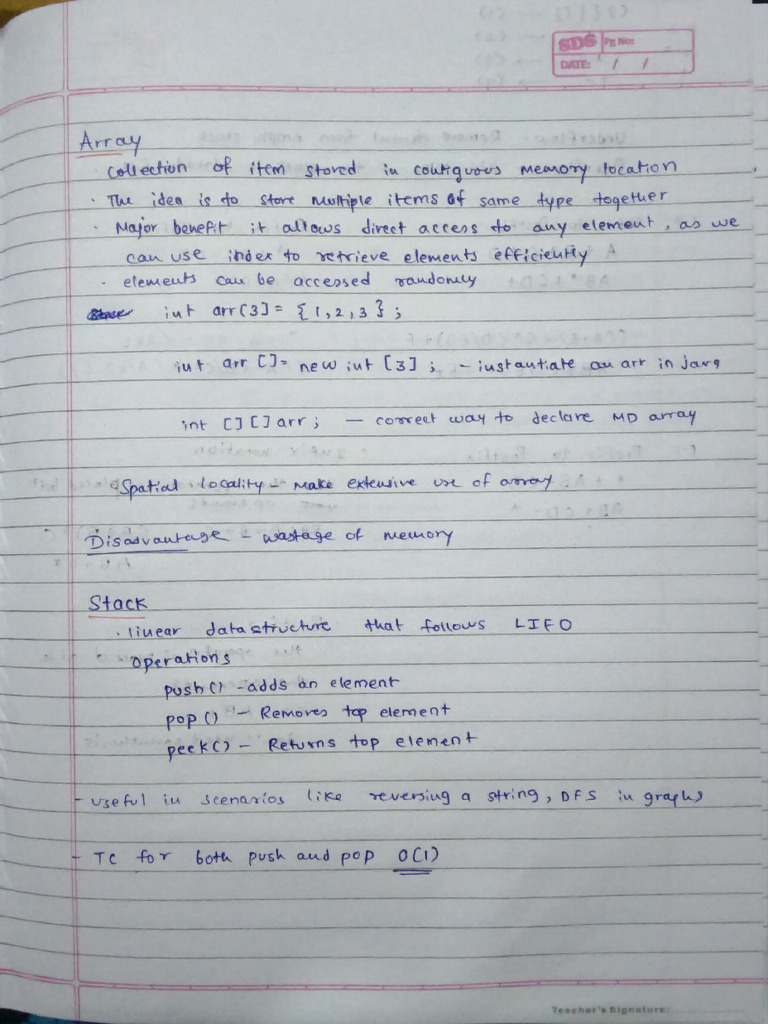 SDS Pg No:
DATE: / /
Array
· collection of item stored in contiguous memory location
· The idea is to store multiple items of same type together
· Major benefit it allows direct access to any element, as we
can use index to retrieve elements efficiently
· elements can be accessed randomly
int arr[3] = {1,2,3};
int arr []= new int [3]; - instantiate an arr in java
int [][]arr; — correct way to declare MD array
Spatial locality - Make extensive use of array
Disadvantage - wastage of memory
Stack
· linear datastructure that follows LIFO
· operations
push() - adds an element
pop() - Removes top element
peek() - Returns top element
- useful in scenarios like reversing a string, DFS in graphs
- TC for both push and pop O(1)
Teacher's Signature: